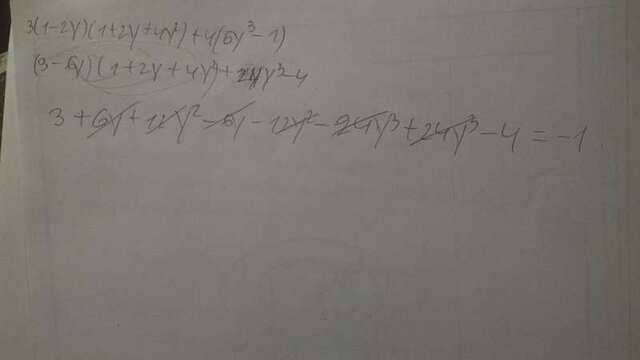 3(1-2y)(1+2y+4y²)+4(6y³-1)
(3-6y)(1+2y+4y²)+24y³-4
3+6y+12y²-6y-12y²-24y³+24y³-4=-1